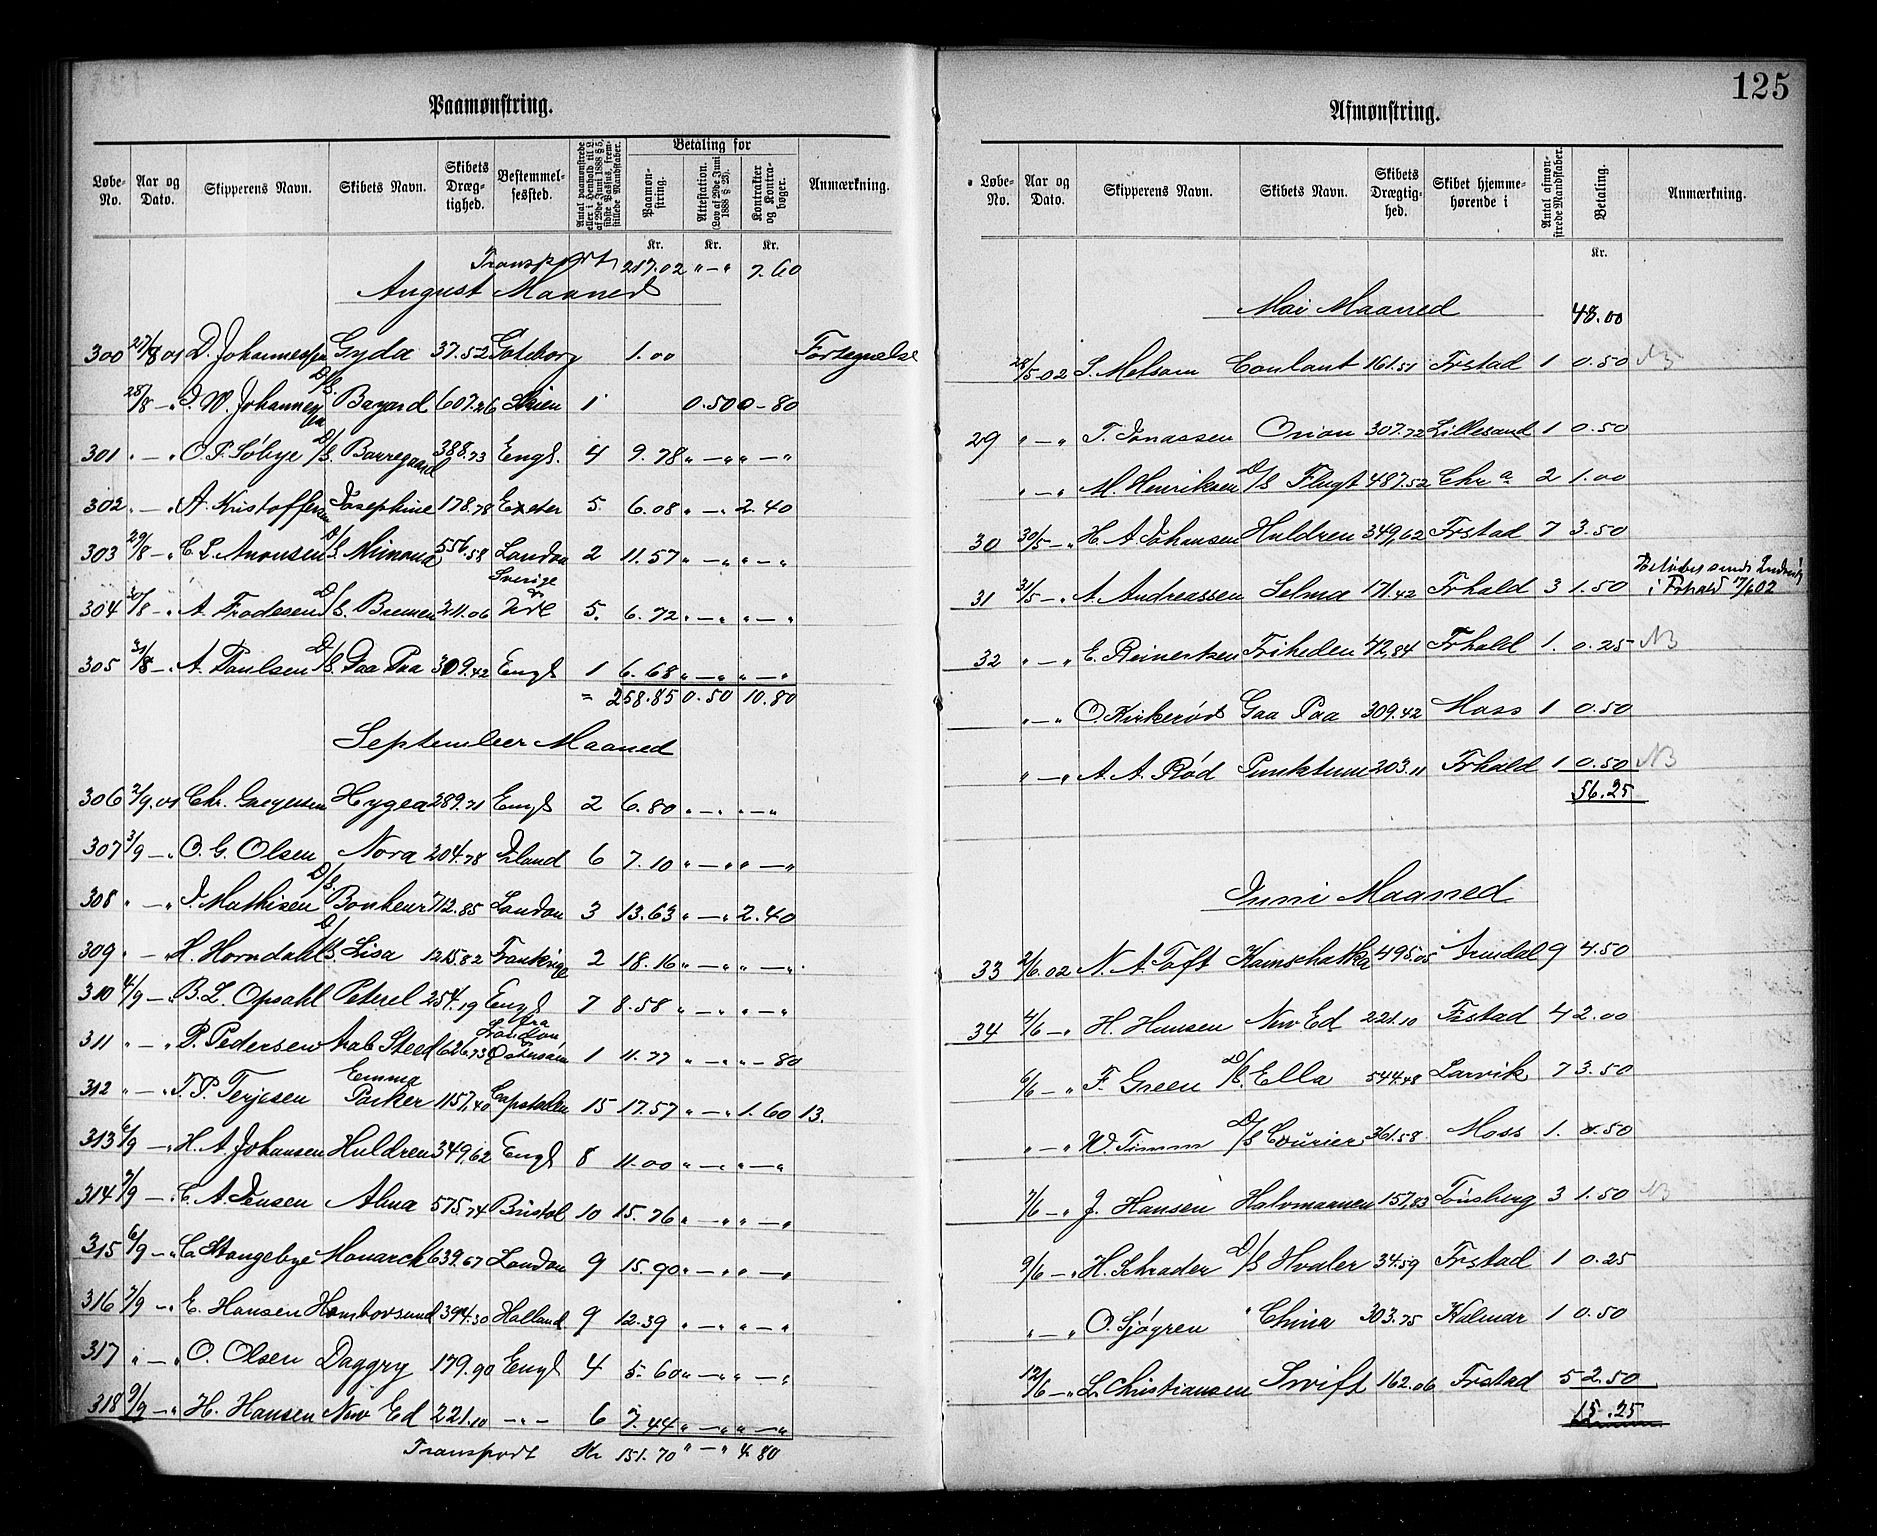 125
Paamønstring.
Løbe-No. Aar og Dato. Skipperens Navn. Skibets Navn. Skibets Dræg-tighed. Bestemmel-sessted. Betaling for Paamøn-string. Attestation. (Lov af 29de Juni 1888 § 23). Kontrakter og Kontra-bøger. Anmærkning.
Kr. Kr. Kr.
Transport 217.02 " — " 7.60
August Maaned
300 27/8 01 D. Johannessen Gyda 37.52 Goteborg 1.00
28/8 — " J. W. Johannessen D/S. Bayard 607.26 Skien 1 0.50 0-80
301 " — " O. P. Söbye D/S. Borregaard 388.73 Engl. 4 9.78 " — " " — "
302 " — " A. Kristoffersen Josephine 178.78 Exeter 5. 6.08 " — " 2.40
303 29/8 — " D/S. 556.58 London 2 11.57 " — " " — "
304 30/8 — " A. D/S. Bremen 211.06 Sverige 5. 6.72 " — " " — "
305 31/8 — " A. Paulsen D/S. Gaa Paa 309.42 Engl 1 6.68 " — " " — "
= 258.85 0.50 10.80
September Maaned
306 2/9.01 Chr. Hygea 289.71 Engl 2 6.80 " — " " — "
307 3/9 — " O. G. Olsen Nora 204.78 6 7.10 " — " " — "
308 " — " J. Mathisen D/S. Bonheur 712.85 London 3 13.63 " — " 2.40
309 " — " H. Horndahl D/S. Lisa 1215.82 Frankrige 2 18.16 " — " " — "
310 4/9 — " B. L. Opsahl Peterel 254.19 Engl 7 8.58 " — " " — "
311 " — " P. Pedersen Arab Steed 626.73 1 11.77 " — " " - 80
312 " — " T. P. Terjesen Emma Parker 1157.40 15 17.57 " — " 1.60 13.
313 6/9 — " H. A. Johansen Huldren 349.62 Engl 8 11.00 " — " " — "
314 — " C. A. Jensen Alma 575.74 Bristol 10 15.76 " — " " — "
315 6/9 — " C. Stangebye Monarch 639.67 London 9 15.90 " — " " — "
316 7/9 — " E. Hansen 394.30 Holland 9 12.39 " — " " — "
317 " — " O. Olsen Daggry 179.90 Engl 4 5.60 " — " " — "
318 9/9 — " H. Hansen New Ed 221.10 - " - 6 7.44 " — " " — "
Transport Kr 151.70 " — " 4.80
Afmønstring.
Løbe-No. Aar og Dato. Skipperens Navn. Skibets Navn. Skibets Drægtig-hed. Skibet hjemme-hørende i Antal afmøn-strede Mandskaber. Betaling. Anmærkning.
Kr.
Mai Maaned 48.00
28/5-02 S. Melsom Conlant 161.51 Frstad 1 0.50 NB
29 " — " T. Jonassen Orion 307.72 Lillesand 1 0.50
" — " M. Henriksen D/S Flugt 487.52 Chr a 2 1.00
30 30/5 — " H. A. Johansen Huldren 349,62 Frstad 7 3.50
31 31/5 — " A. Andreassen Selma 171.42 Frhald 3 1.50 i Frhald 7/6 02
32 " — " E. Reinertsen Friheden 42,84 Frhald 1. 0.25 NB
" — " O. Kirkeröd Gaa Paa 309.42 Moss 1 0.50
" — " A. A. Röd Punktum 203.11 Frhald 1 0.50 NB
56.25
Juni Maaned
33 2/6.02 N. A. Toft Kamschatka 495.05 Arendal 9 4.50
34 4/6 — " H. Hansen New Ed 221.10 Frstad 4 2.00
6/6 — " F. Green D/S. Ella 544.48 Larvik 7 3.50
" — " W. Timm D/S Courier 361.58 Moss 1. 0.50
7/6 — " J. Hansen Halvmaanen 157,83 Tönsberg 3 1.50 NB
9/6 — " H. Schrader D/S Hvaler 34.59 Frstad 1 0.25
" — " O. Sjögren China 303.75 Kalmar 1 0.50
12/6 — " L. Christiansen Swift 162.06 Frstad 5 2.50
15.25